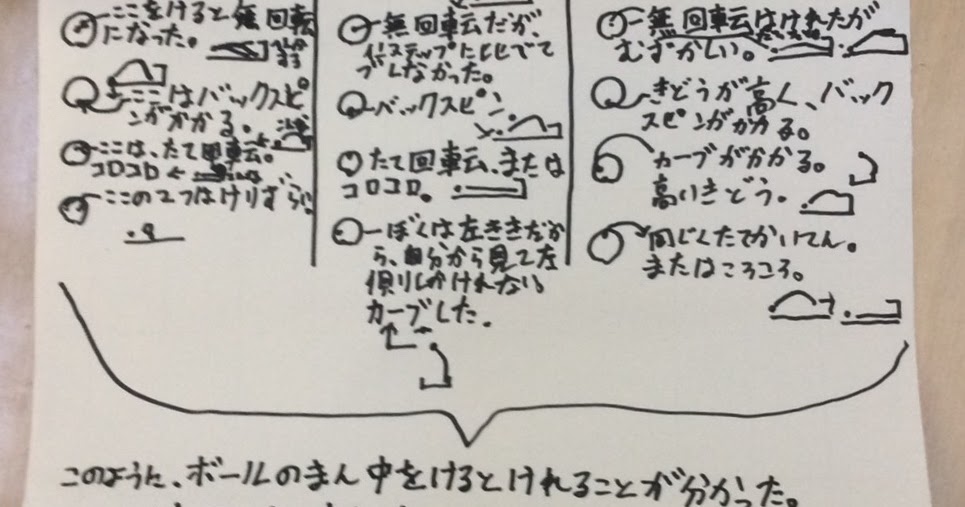 ここをけると無回転
になった。
ここはバックスピ
ンがかかる。
ここは、たて回転。
コロコロ←
ここの2つはけりずらい
無回転だが、
ステップに比べて
ブレなかった。
バックスピン。
たて回転、または
コロコロ。
ぼくは左ききだか
ら、自分から見て左
側りしかけれない
カーブした。
無回転はけれたが
むずかしい。
きどうが高く、バック
スピンがかかる。
カーブがかかる。
高いきどう。
同じくたてかいてん。
またはころころ。
このように、ボールのまん中をけるとけれることが分かった。